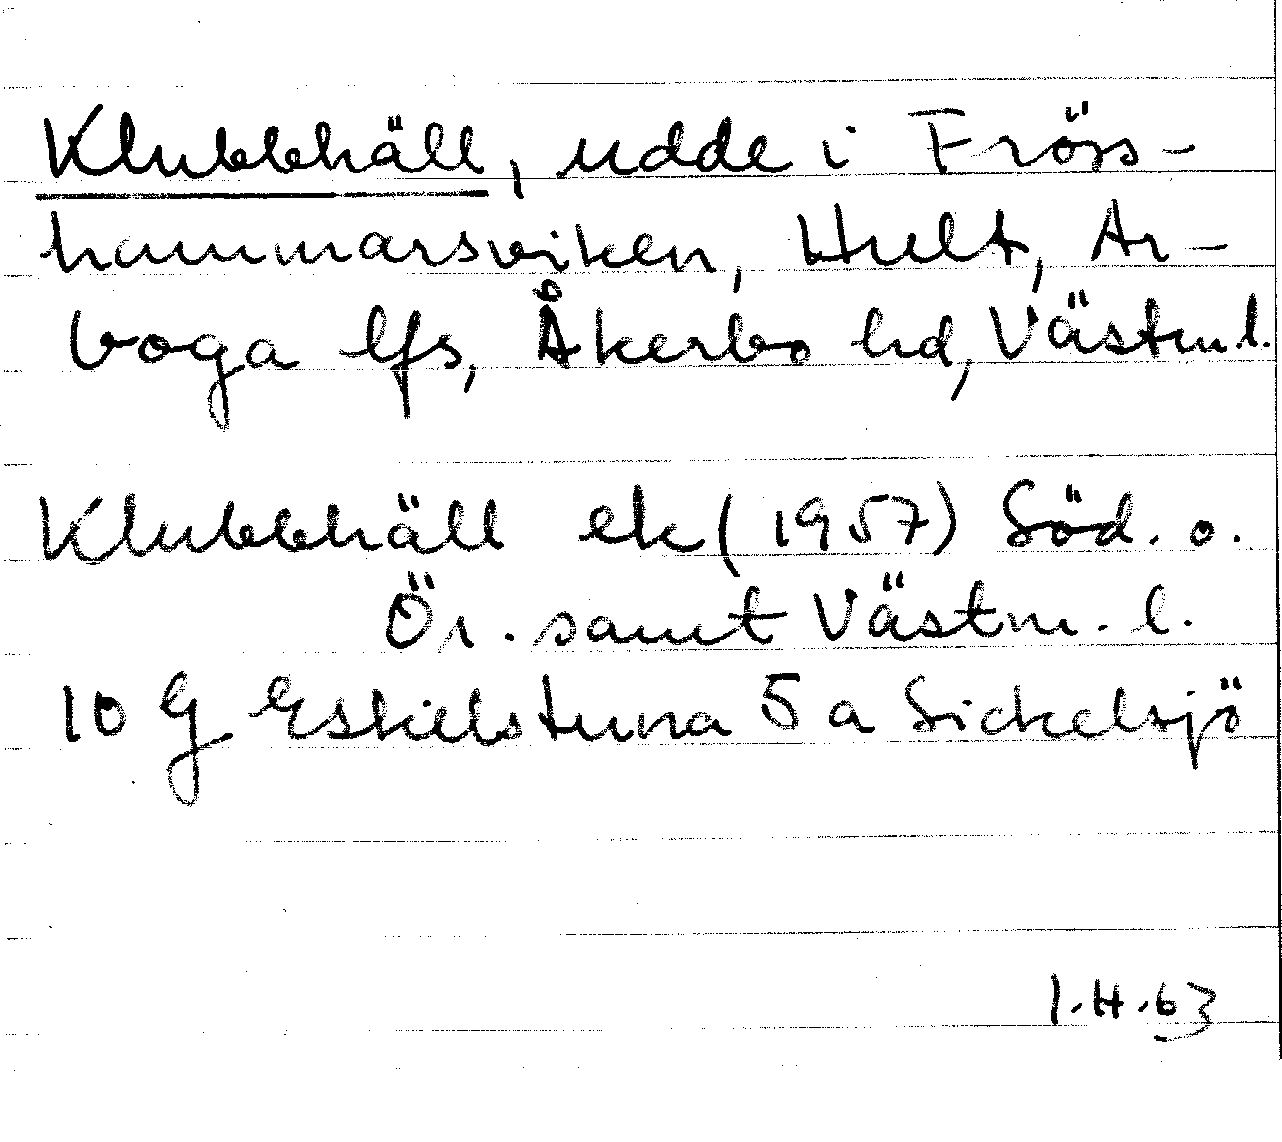 Klubbhäll, udde i Frös-
hammarsviken, Hult, Ar-
boga lfs, Åkerbo hd, Västm.l.
Klubbhäll ek (1957) Söd. o.
Ör. samt Västm. l.
10 G Eskilstuna 5 a Sickelsjö
I.H.63